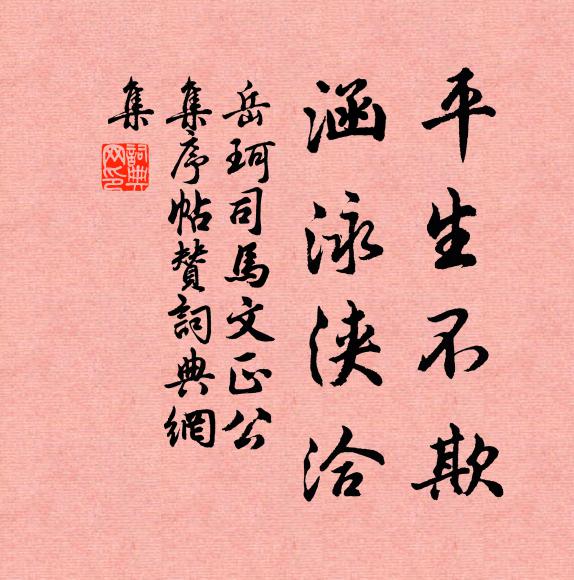 平生不欺
涵泳浹洽
岳珂司馬文正公
集序帖贊詞典網
集
詞典網印